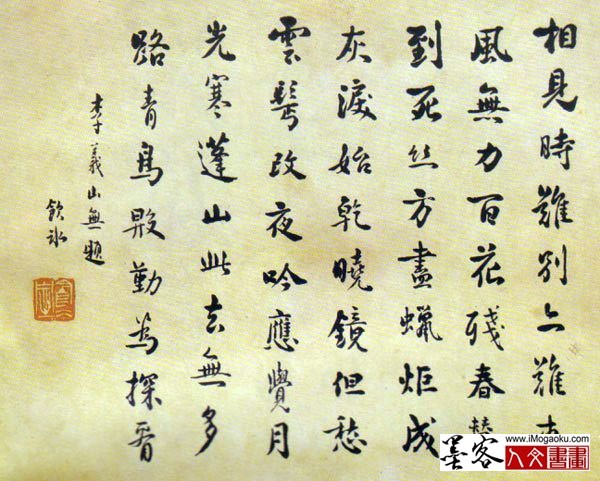 相見時難別亦難東
風無力百花殘春蠶
到死丝方盡蠟炬成
灰淚始乾曉鏡但愁
雲鬢改夜吟應覺月
光寒蓬山此去無多
路青鳥殷勤為探看
李義山無題
飲冰
墨客
www.iMogaoku.com
人文書畫